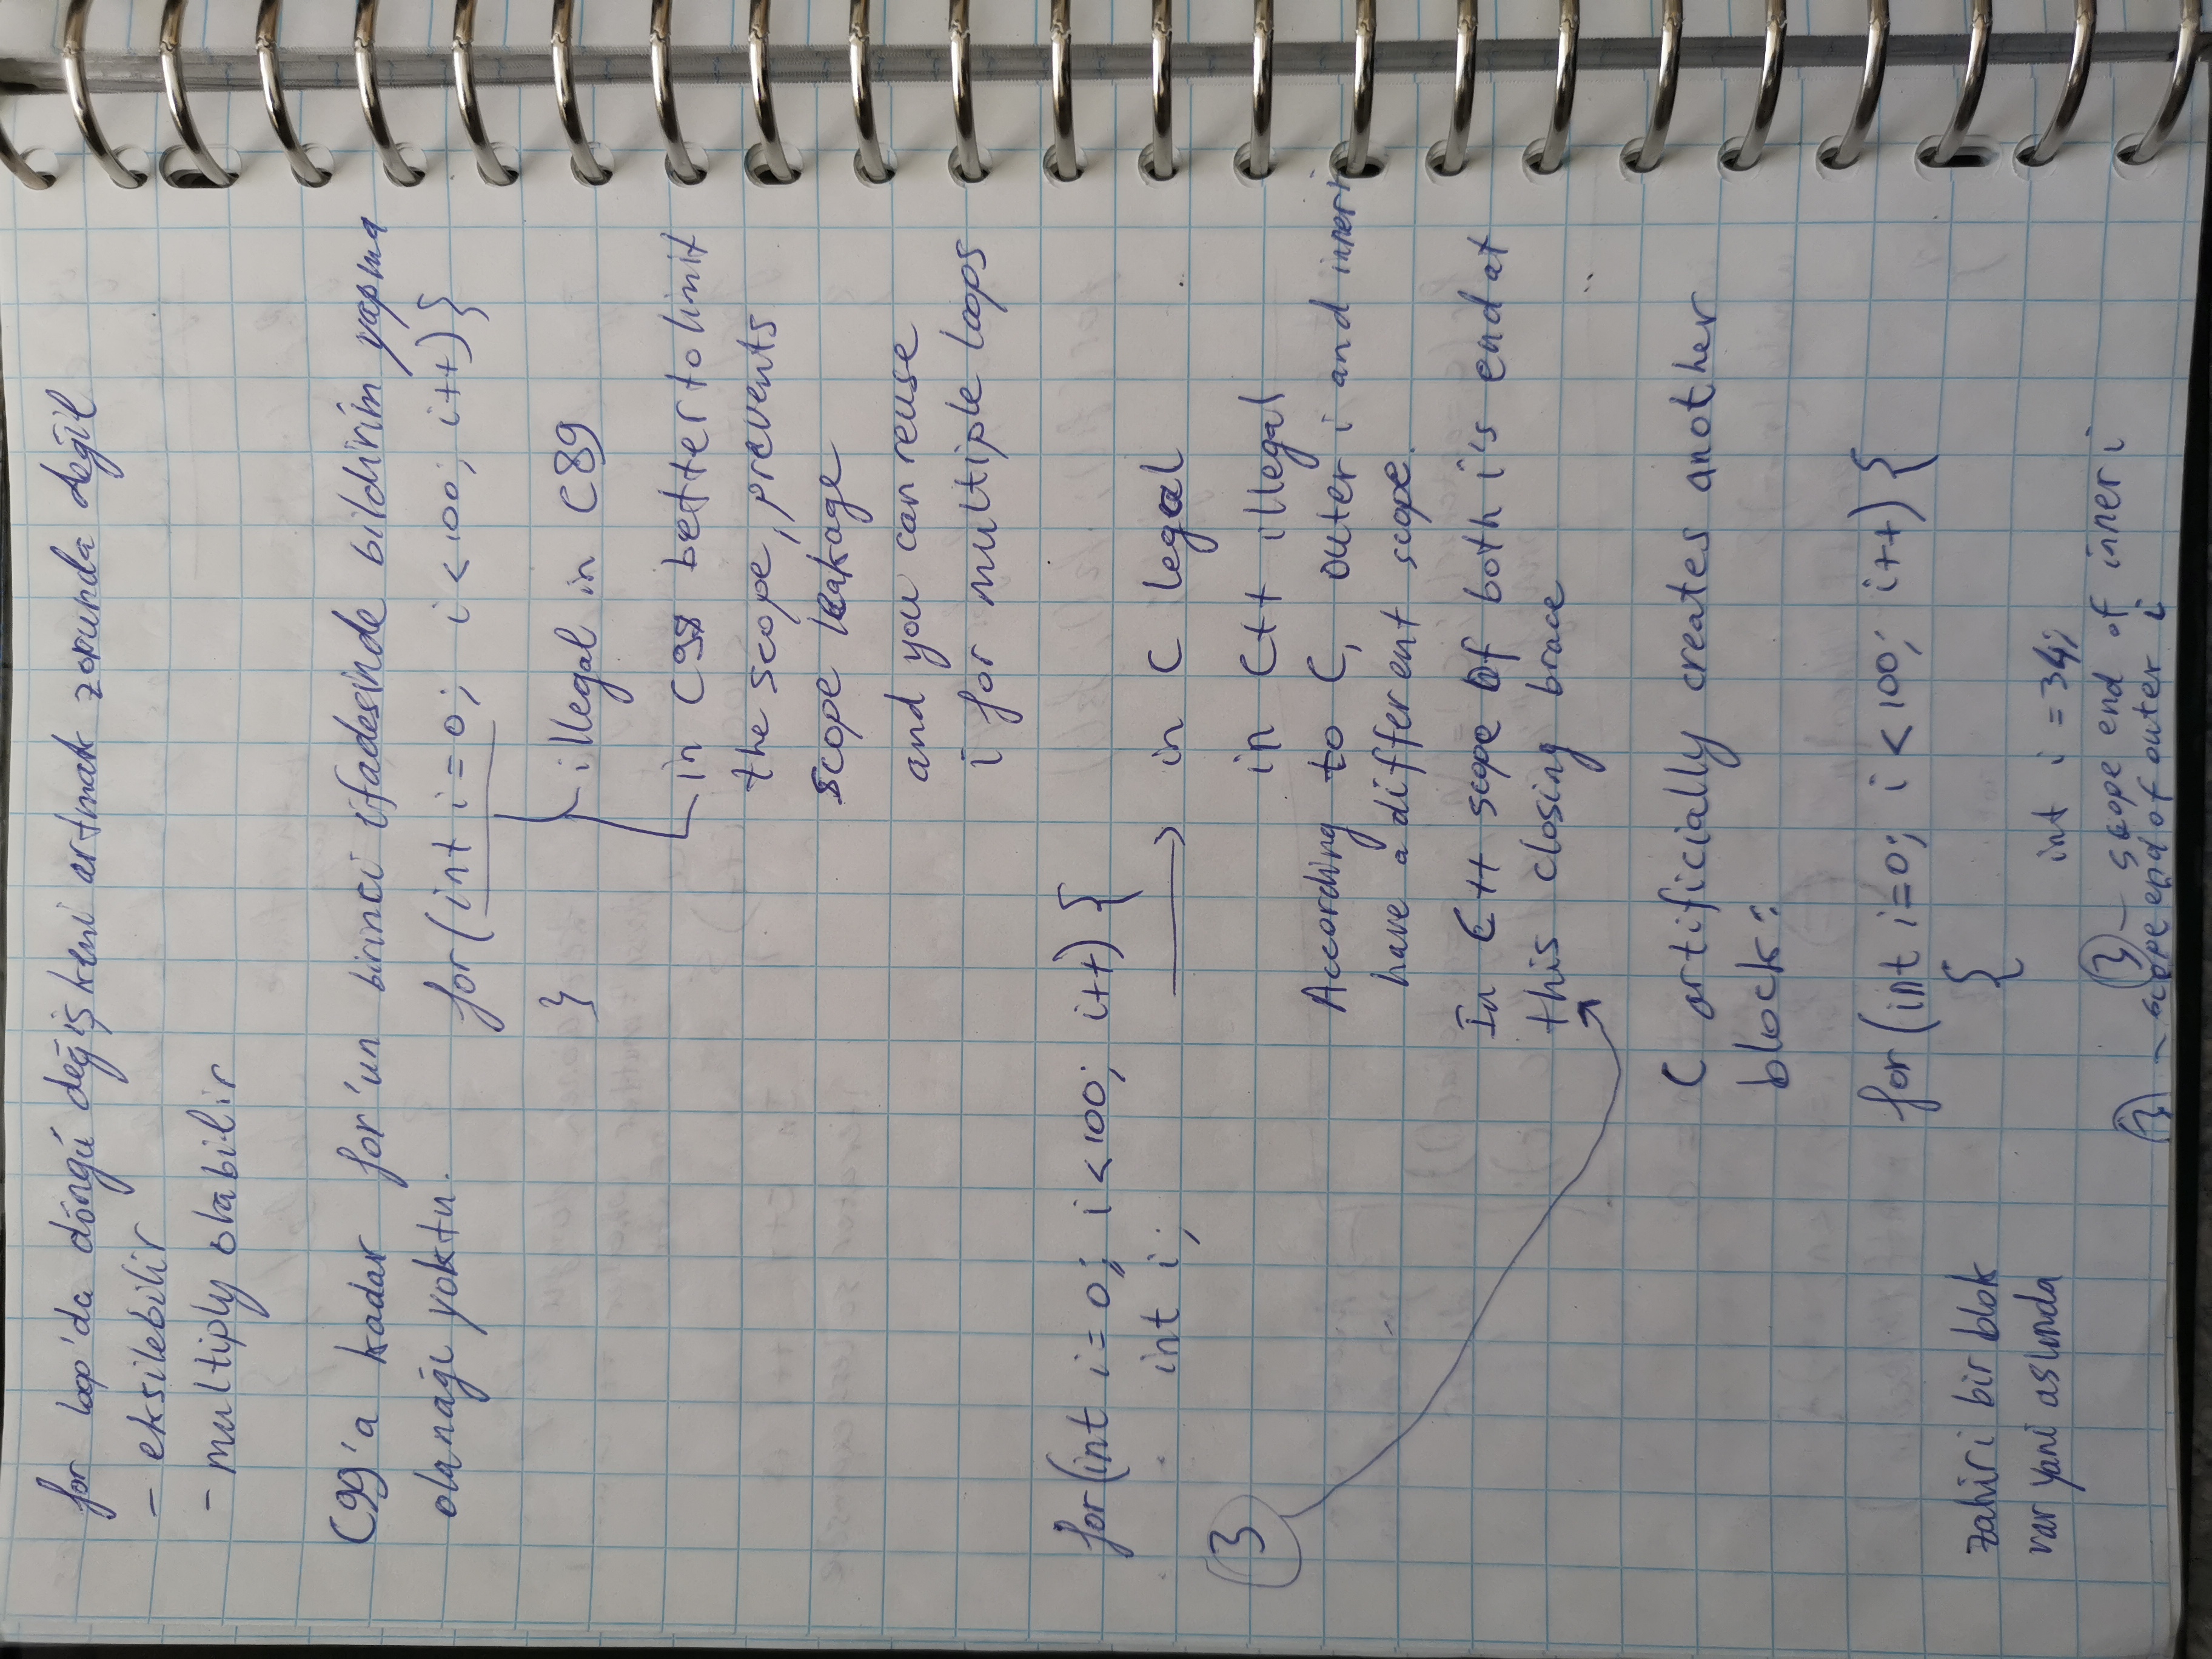 for loop'da döngü değişkeni artmak zorunda değil
- eksilebilir
- multiply olabilir
C99'a kadar for'un birinci ifadesinde bildirim yapma
olanağı yoktu.
for(int i=0; i<100; i++){
}
illegal in C89
in C99 better to limit
the scope, prevents
scope leakage
and you can reuse
i for multiple loops
for(int i=0; i<100; i++) {
int i; → in C legal
}
in C++ illegal
According to C, outer i and inner i
have a different scope.
In C++ scope of both i's end at
this closing brace
C artificially creates another
block:
for (int i=0; i<100; i++) {
zahiri bir blok
var yani aslında
{
int i = 34;
} - scope end of inner i
} - scope end of outer i